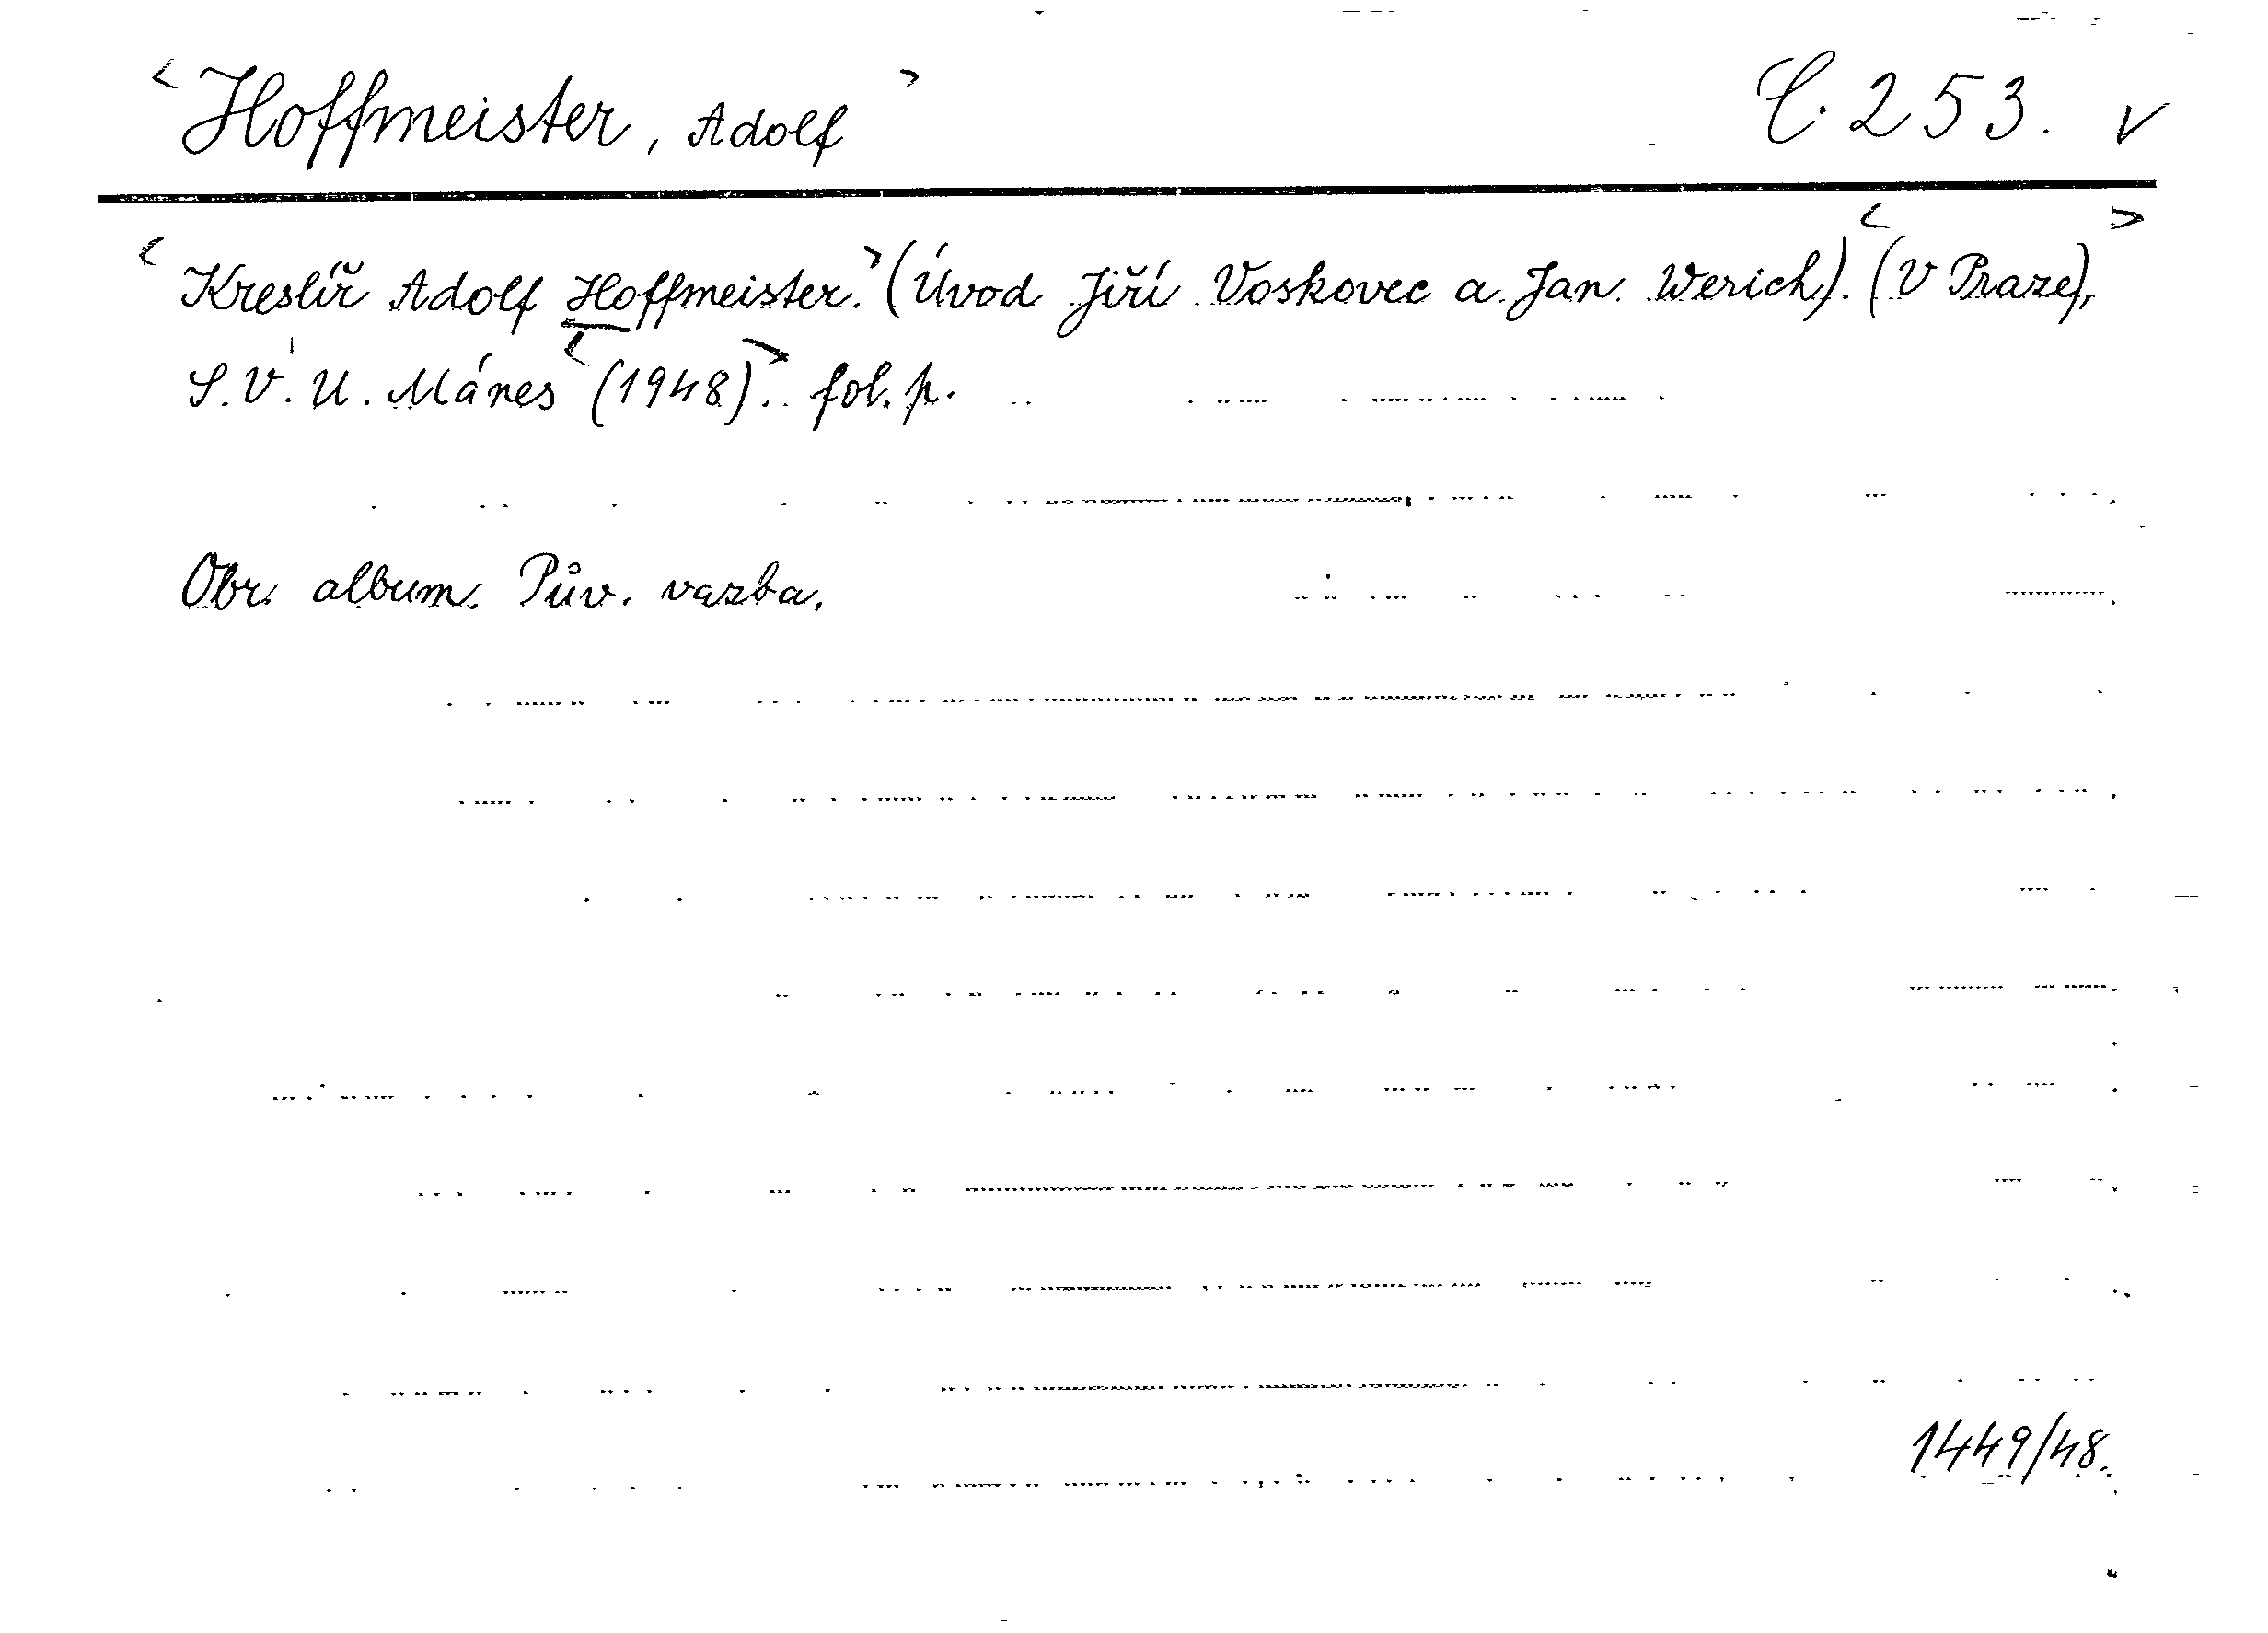 <Hoffmeister, Adolf> C. 253. v
<Kreslíř Adolf Hoffmeister.> (Úvod Jiří Voskovec a Jan Werich). <(V Praze),>
S. V. U. Mánes <(1948).> fol. p.
Obr. album. Pův. vazba.
1449/48.